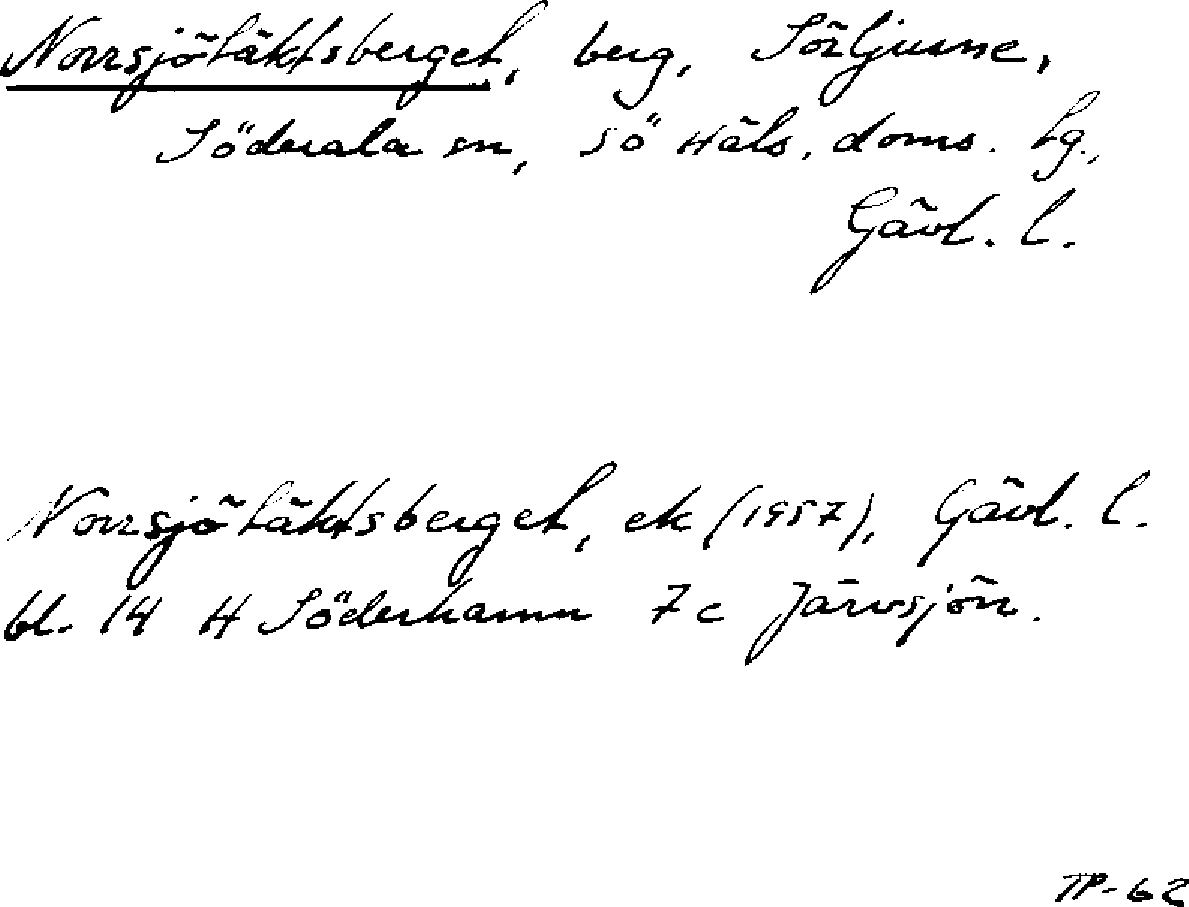 Norrsjötäktsberget, berg, Sörljusne,
Söderala sn, sö Häls. doms. hg.,
Gävl. l.
Norrsjötäktsberget, ek (1957), Gävl. l.
bl. 14 H Söderhamn 7c Järvsjön.
TP-62